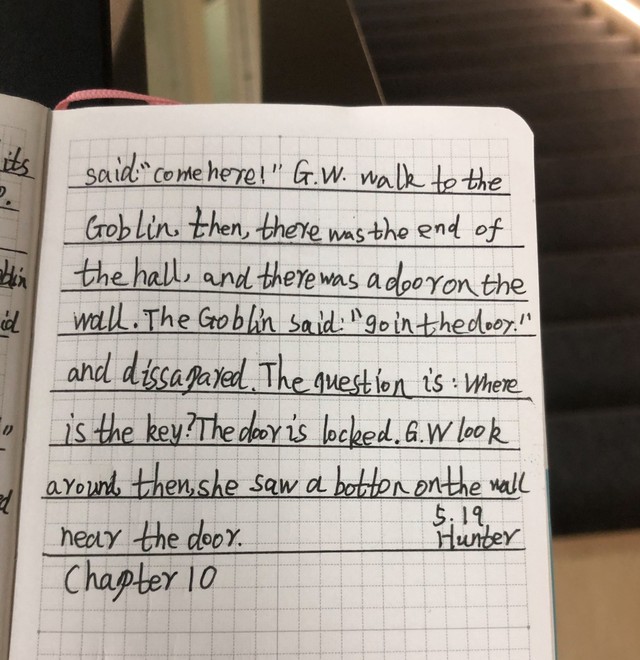 its
said:"come here!" G.W. walk to the
Goblin, then, there was the end of
the hall, and there was a door on the
wall. The Goblin said:"go in the door."
id
and dissapared. The question is: Where
is the key? The door is locked. G.W look
around, then, she saw a botton on the wall
5.19
near the door. Hunter
Chapter 10